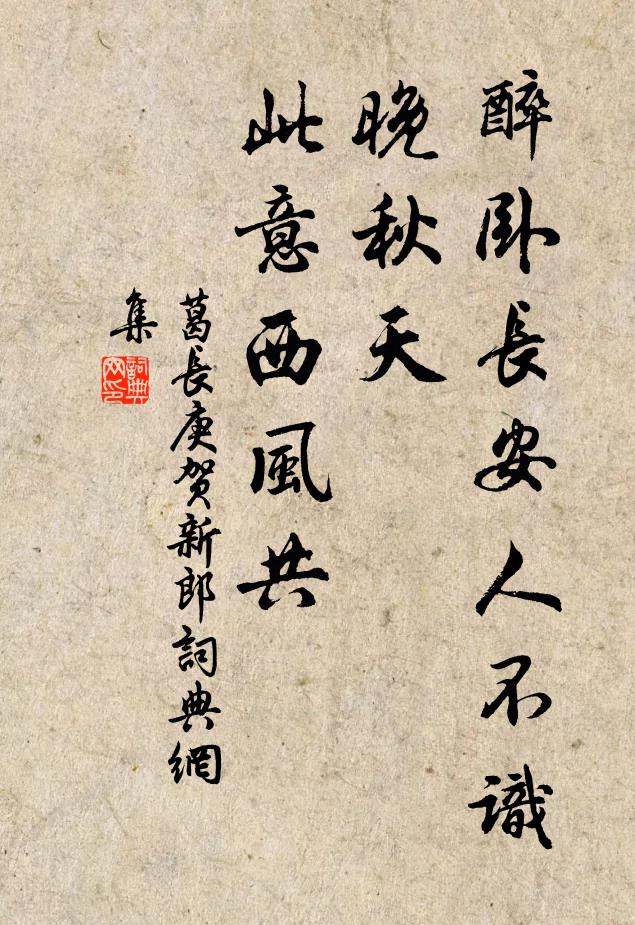 醉卧長安人不識
晚秋天
此意西風共
葛長庚贺新郎詞典網
集
詞典
网印